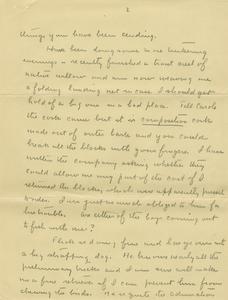 2
things you have been sending.
Have been doing some in me tinkering
evenings - recently finished a trout creel of
native willow and am now weaving me
a folding landing net in case I should get
hold of a big one in a bad place. Tell Carole
the cork came but it is composition cork
made out of outer bark and you could
break all the blocks with your fingers. I have
written the company asking whether they
would allow me any part of the cost if I
returned the blocks, which were apparently pressed
I am just as much obliged to him for
his trouble. Are either of the boys coming out
to fish with me?
is doing fine and has grown into
a big strapping dog. He has won nearly all the
preliminary tricks and I am sure will make
me a fine retriever if I can prevent him from
chasing the birds. He is quite the admiration